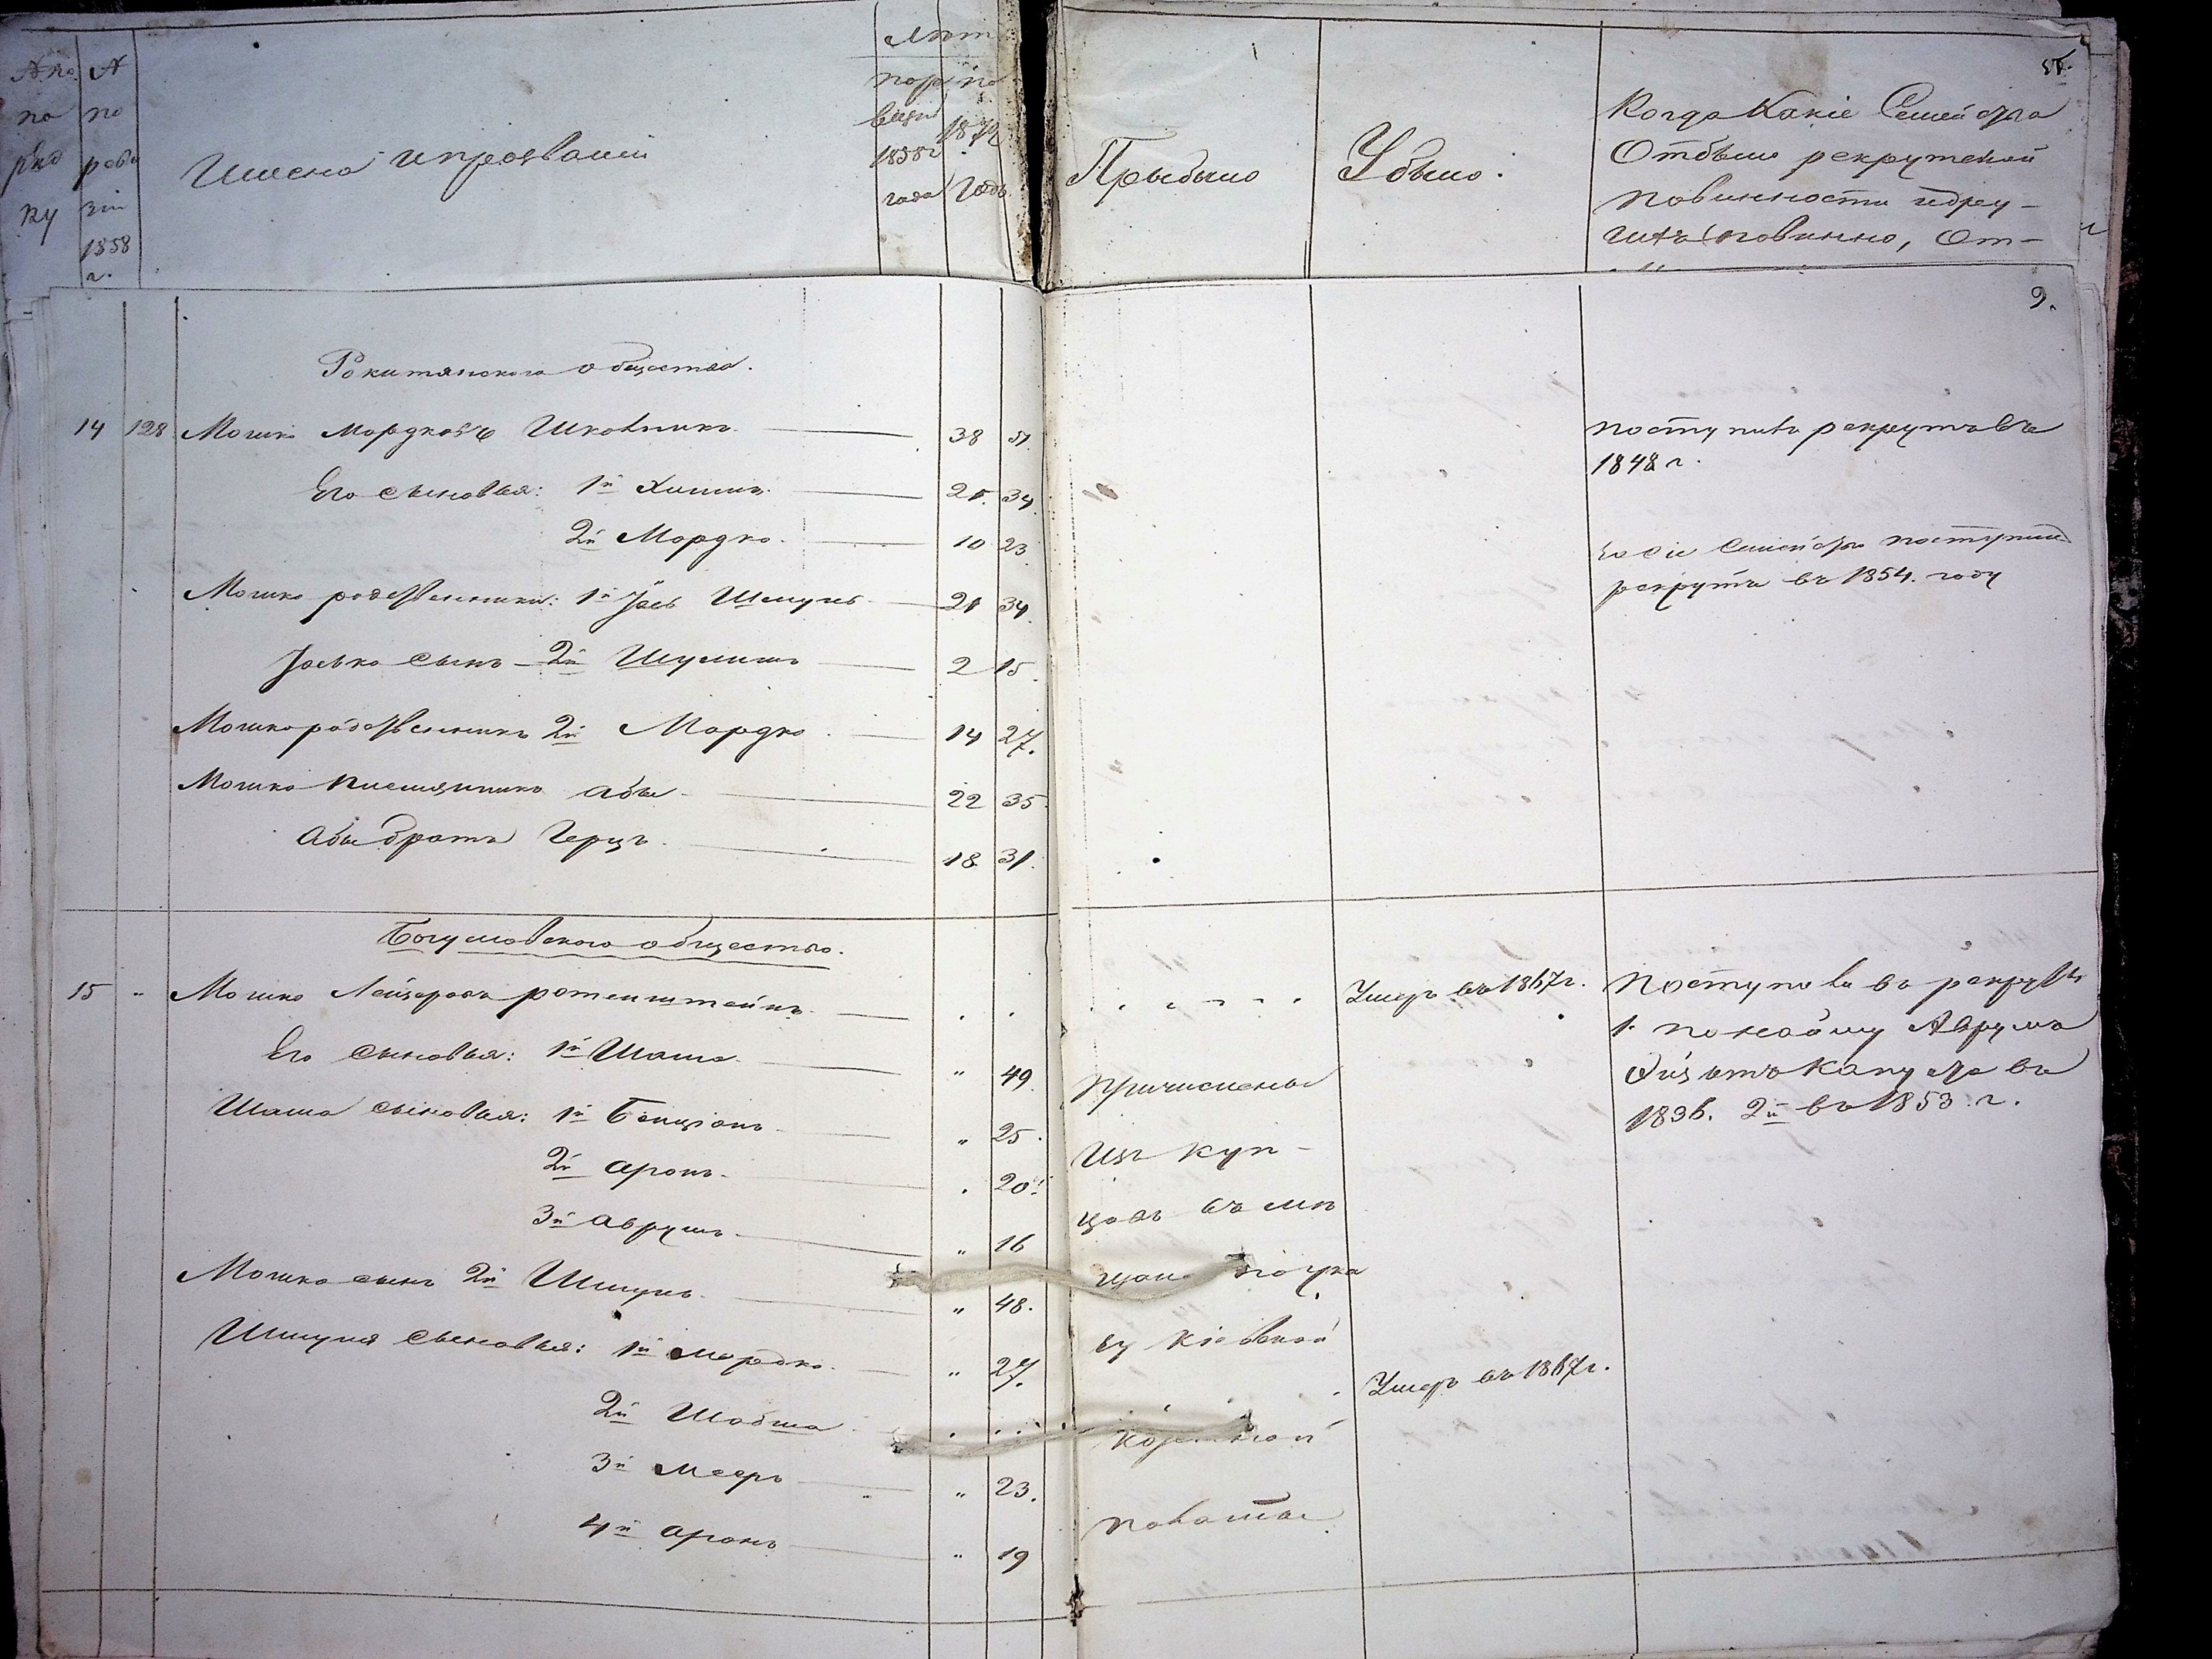 по
ряд
ку
по
реви
зіи
1858
г.
Имена и прозванія
Лѣт
1858 г
года
по
1871
Годъ
Прыбыло
Убыло.
Когда Какіе Семейства
Отбыли рекрутской
повинности
повинно, От-
9.
Рокитянского общества.
14 128 Мошко Мордковъ Школьникъ 38 51.
поступилъ рекрутъ въ
1848 г.
Его сыновья: 1й Хаимъ 21. 34
2й Мордко 10 23
сіе Семейство поступилъ
рекрутъ въ 1854. году
Мошко родственники: 1й Іось Шмуль 21 34
Іосько сынъ 2й Шулимъ 2 15
Мошко родственникъ 2й Мордко 14 27.
Мошко племянникъ Абы 22 35
Абы братъ Герцъ 18 31.
Богуславского общества.
15 " Мошко Лейзеровъ ротенштейнъ . .
Умеръ въ 1867 г.
Поступила въ рекруты
1. по найму Аврума
въ
1836. 2й въ 1853. г.
Его сыновья: 1й Шама " 49
Причислены
Шама сыновья: 1й Бенціонъ " 25.
Изъ Куп-
2й Аронъ . 20
цовъ въ мѣ
3й Аврумъ " 16
щане
Мошко сынъ 2й Шмуль " 48.
Кіевской
Шмуля сыновья: 1й Мордко " 27.
Умеръ въ 1867 г.
2й Шабша . ..
3й Меер " 23.
4й Аронъ " 19
палаты